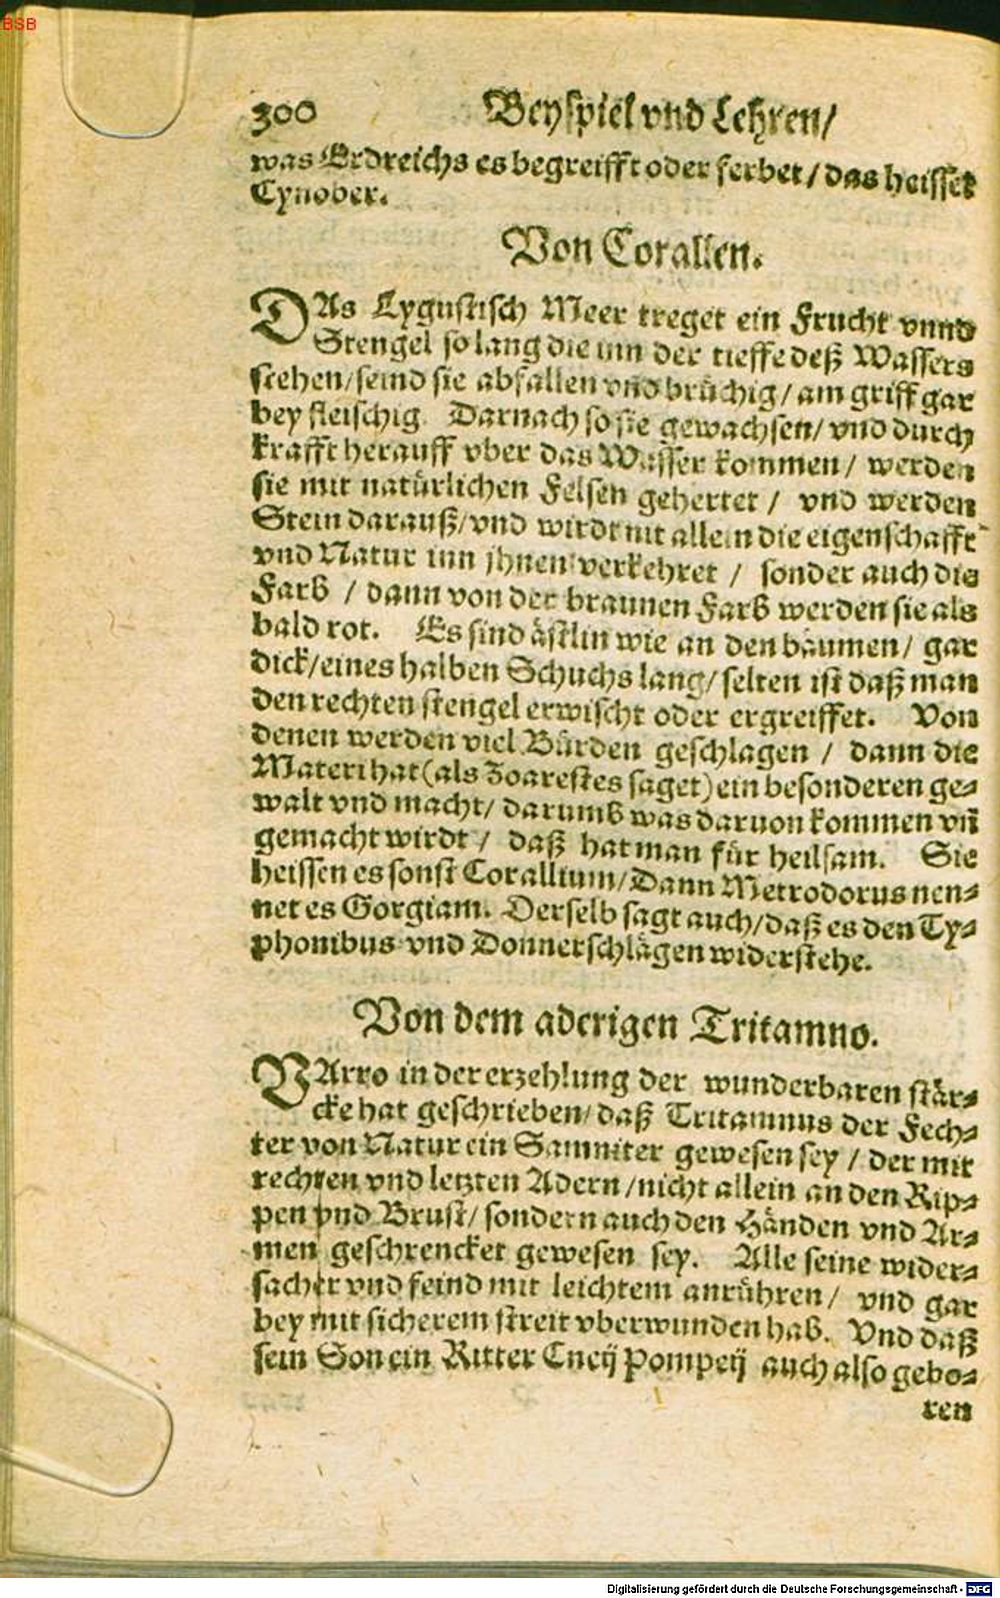 BSB
300 Beyspiel vnd Lehren/
was Erdreichs es begreifft oder ferbet / das heisset
Cynober.
Von Corallen.
DAs Lygustisch Meer treget ein Frucht vnnd
Stengel so lang die inn der tieffe deß Wassers
stehen/seind sie abfallen vnd brüchig / am griff gar
bey fleischig. Darnach so sie gewachsen/ vnd durch
krafft herauff vber das Wasser kommen / werden
sie mit natürlichen Felsen gehertet / vnd werden
Stein darauß/vnd wirdt nit allein die eigenschafft
vnd Natur inn jhnen verkehret / sonder auch die
Farb / dann von der braunen Farb werden sie als
bald rot. Es sind ästlin wie an den bäumen / gar
dick/eines halben Schuchs lang/ selten ist daß man
den rechten stengel erwischt oder ergreiffet. Von
denen werden viel Bürden geschlagen / dann die
Materi hat (als Zoarestes saget) ein besonderen ge-
walt vnd macht/ darumb was daruon kommen vñ
gemacht wirdt / daß hat man für heilsam. Sie
heissen es sonst Corallium/Dann Metrodorus nen-
net es Gorgiam. Derselb sagt auch/daß es den Ty-
phonibus vnd Donnerschlägen widerstehe.
Von dem aderigen Tritamno.
VArro in der erzehlung der wunderbaren stär-
cke hat geschrieben/ daß Tritamnus der Fech-
ter von Natur ein Samniter gewesen sey / der mit
rechten vnd letzten Adern /nicht allein an den Rip-
pen vnd Brust/ sondern auch den Händen vnd Ar-
men geschrencket gewesen sey. Alle seine wider-
sacher vnd feind mit leichtem anrühren / vnd gar
bey mit sicherem streit vberwunden hab. Vnd daß
sein Son ein Ritter Cneij Pompeij auch also gebo-
ren
Digitalisierung gefördert durch die Deutsche Forschungsgemeinschaft - DFG